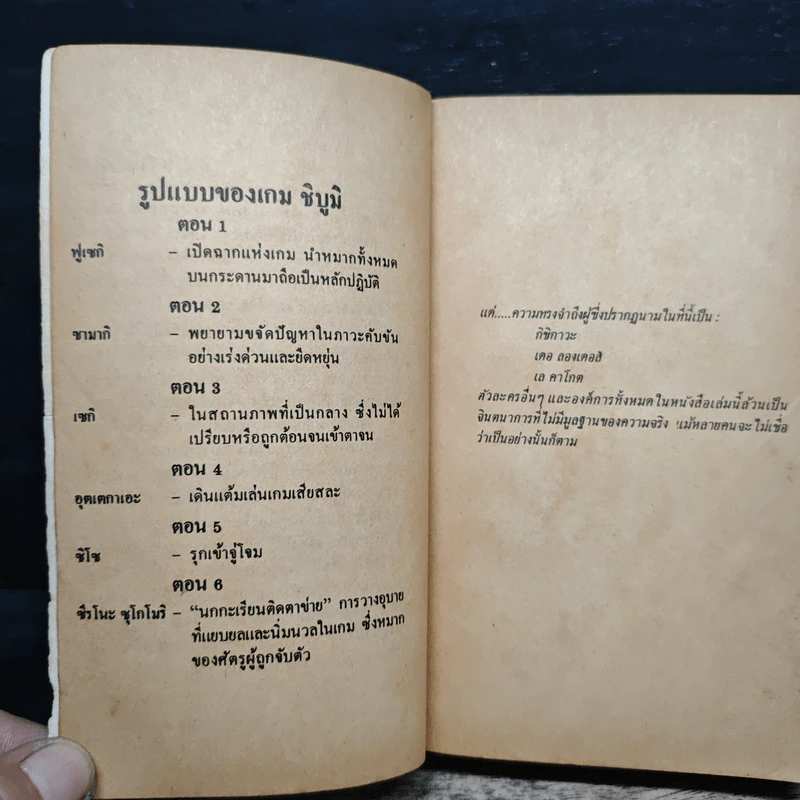 รูปแบบของเกม ชิบูมิ
ตอน 1
ฟูเซกิ – เปิดฉากแห่งเกม นำหมากทั้งหมด
บนกระดานมาถือเป็นหลักปฏิบัติ
ตอน 2
ซามากิ – พยายามขจัดปัญหาในภาวะคับขัน
อย่างเร่งด่วนและยืดหยุ่น
ตอน 3
เซกิ – ในสถานภาพที่เป็นกลาง ซึ่งไม่ได้
เปรียบหรือถูกต้อนจนเข้าตาจน
ตอน 4
อุตเตกาเอะ – เดินแต้มเล่นเกมเสียสละ
ตอน 5
ชิโช – รุกเข้าจู่โจม
ตอน 6
ซึรโนะ ซุโกโมริ – “นกกะเรียนติดตาข่าย” การวางอุบาย
ที่แยบยลและนิ่มนวลในเกม ซึ่งหมาก
ของศัตรูผู้ถูกจับตัว
แด่.....ความทรงจำถึงผู้ซึ่งปรากฏนามในที่นี้เป็น :
กิชิกาวะ
เดอ ลองเดอส์
เล คาโกต
ตัวละครอื่นๆ และองค์การทั้งหมดในหนังสือเล่มนี้ล้วนเป็น
จินตนาการที่ไม่มีมูลฐานของความจริง แม้หลายคนจะไม่เชื่อ
ว่าเป็นอย่างนั้นก็ตาม